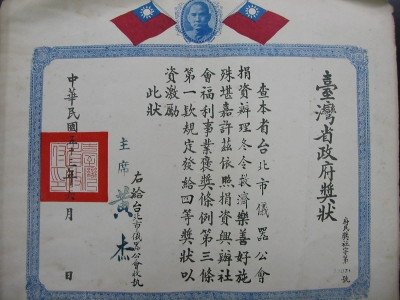 臺灣省政府獎狀
府民獎社字第 號
查本省台北市儀器公會
捐資辦理冬令救濟樂善好施
殊堪嘉許茲依照捐資興辦社
會福利事業褒獎條例第三條
第一款規定發給四等獎狀以
資激勵
此狀
右給台北市儀器公會收執
主席 黃杰
中華民國五十三年 月 日